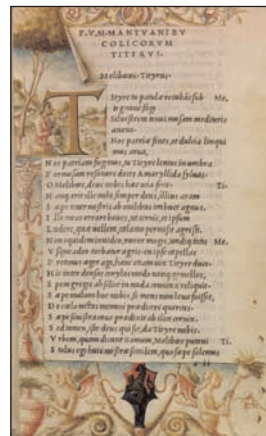 P.V.M.MANTVANI BV
COLICORVM
TITYRVS.
Meliboeus. Tityrus.
Tityre tu patulæ recubans sub Me.
tegmine fagi
Siluestrem tenui musam meditaris
auena.
Nos patriæ fines, et dulcia linqui
mus arua,
N os patriam fugimus, tu Tityre lentus in umbra
F ormosam resonare doces Amaryllida syluas.
O Meliboee, deus nobis hæc ocia fecit. Ti.
N anque erit ille mihi semper deus, illius aram
S æpe tener nostris ab ouilibus imbuet agnus.
I lle meas errare boues, ut cernis, et ipsum
L udere, quæ uellem, calamo permisit agresti.
N on equidem inuideo, miror magis, undique totis Me.
V sque adeo turbatur agris. en ipse capellas
P rotinus æger ago, hanc etiam uix Tityre duco.
H ic inter densas corylos modo nanque gemellos,
S pem gregis ah silice in nuda connixa reliquit.
S æpe malum hoc nobis, si mens non læua fuisset,
D e cælo tactas memini prædicere quercus.
S æpe sinistra caua prædixit ab ilice cornix.
S ed tamen, iste deus qui sit, da Tityre nobis.
V rbem, quam dicunt Romam, Meliboee putaui Ti.
S tultus ego huic nostræ similem, quo sæpe solemus